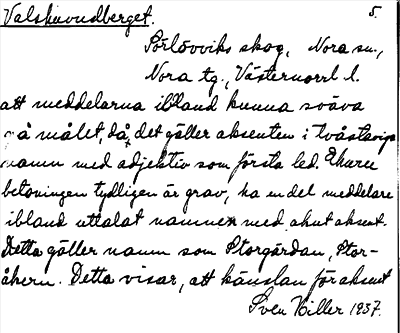 Valshuvudberget. 5.
Sörlövviks skog, Nora sn.,
Nora tg., Västernorrl l.
att meddelarna ibland kunna sväva
på målet, då det gäller aksenten i tvåstaviga
namn med adjektiv som första led. Ehuru
betoningen tydligen är grav, ha en del meddelare
ibland uttalat namnen med akut aksent.
Detta gäller namn som Storgärdan, Stor-
åkern. Detta visar, att känslan för aksent
Sven Hiller 1937.